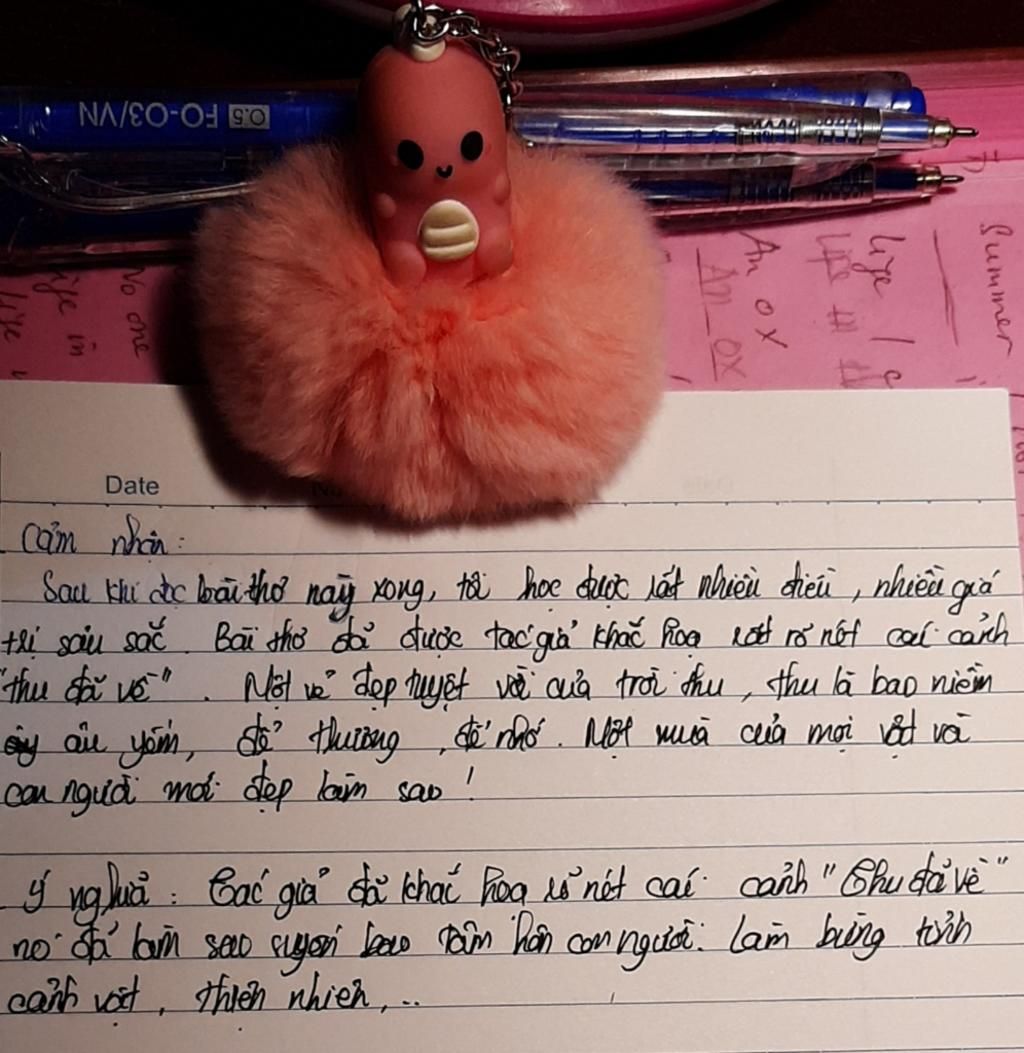 0.5 FO-03/VN
Summer
Life /
An ox
An ox
No one
Life in
Life
Date
Cảm nhận:
Sau khi đọc bài thơ này xong, tôi học được rất nhiều điều, nhiều giá
trị sâu sắc. Bài thơ đã được tác giả khắc hoạ rất rõ nét cái cảnh
"thu đã về". Một vẻ đẹp tuyệt vời của trời thu, thu là bao niềm
âu yếm, để thương, để nhớ. Một mùa của mọi vật và
con người mới đẹp làm sao!
Ý nghĩa: Tác giả đã khắc hoạ rõ nét cái cảnh "Thu đã về"
nó đã làm sao xuyến bao tâm hồn con người. Làm bừng tỉnh
cảnh vật, thiên nhiên,...